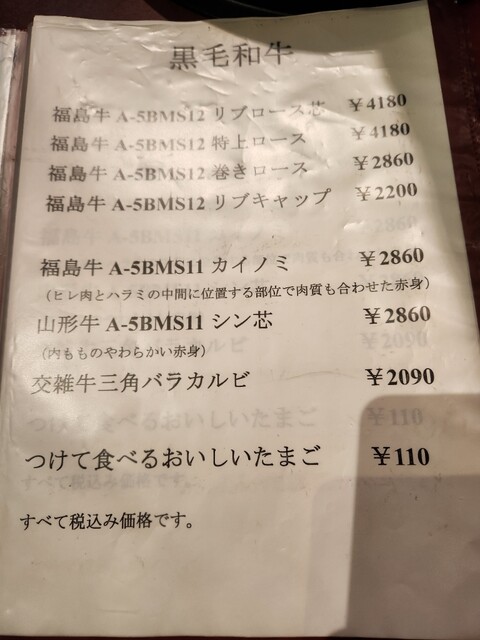 黒毛和牛
福島牛 A-5BMS12 リブロース芯 ￥4180
福島牛 A-5BMS12 特上ロース ￥4180
福島牛 A-5BMS12 巻きロース ￥2860
福島牛 A-5BMS12 リブキャップ ￥2200
福島牛 A-5BMS11 カイノミ ￥2860
（ヒレ肉とハラミの中間に位置する部位で肉質も合わせた赤身）
山形牛 A-5BMS11 シン芯 ￥2860
（内もものやわらかい赤身）
交雑牛三角バラカルビ ￥2090
つけて食べるおいしいたまご ￥110
すべて税込み価格です。